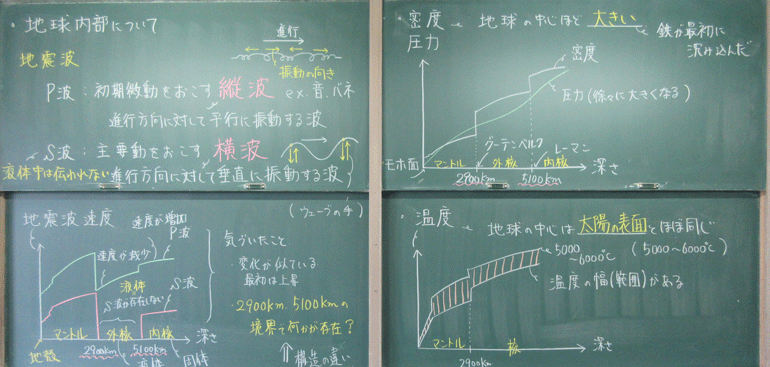 ・地球内部について
進行
地震波
振動の向き
P波：初期微動をおこす 縦波 ex.音、バネ
進行方向に対して平行に振動する波
S波：主要動をおこす 横波
液体中は伝われない 進行方向に対して垂直に振動する波
(ウェーブの手)
地震波速度 速度が増加
P波
速度が減少
液体
S波が存在しない
S波
マントル 外核 内核 深さ
地殻 2900km 5100km
液体 固体
気づいたこと
・変化が似ている
最初は上昇
・2900km、5100kmの
境界で何かが存在？
構造の違い
・密度 地球の中心ほど 大きい
圧力
鉄が最初に
沈み込んだ
密度
圧力(徐々に大きくなる)
グーテンベルク レーマン
モホ面 マントル 外核 内核 深さ
2900km 5100km
・温度 地球の中心は 太陽の表面 とほぼ同じ
(5000〜6000℃)
5000
〜6000℃
温度の幅(範囲)がある
マントル 核 深さ
2900km